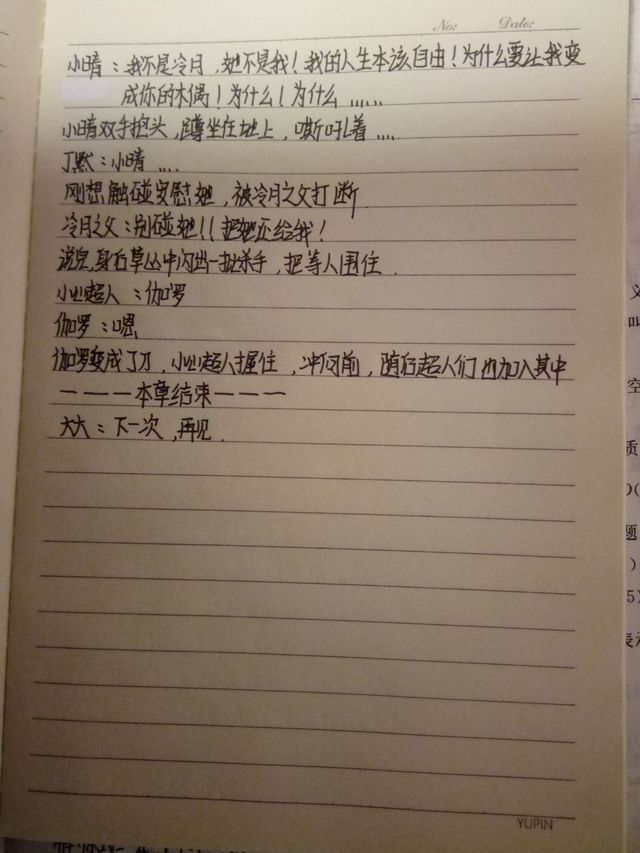 No:   Date:
小晴：我不是冷月，她不是我！我的人生本该自由！为什么要让我变
成你的木偶！为什么！为什么……
小晴双手抱头，蹲坐在地上，嘶吼着……
丁默：小晴……
刚想触碰安慰她，被冷月之父打断
冷月之父：别碰她！！把她还给我！
说完，身后草丛中闪出一批杀手，把等人围住.
小心超人：伽罗
伽罗：嗯
伽罗变成了刀，小心超人握住，冲向前，随后超人们也加入其中
————本章结束————
大大：下一次，再见.
YUPIN
义
叫
空
质
题
)
5)